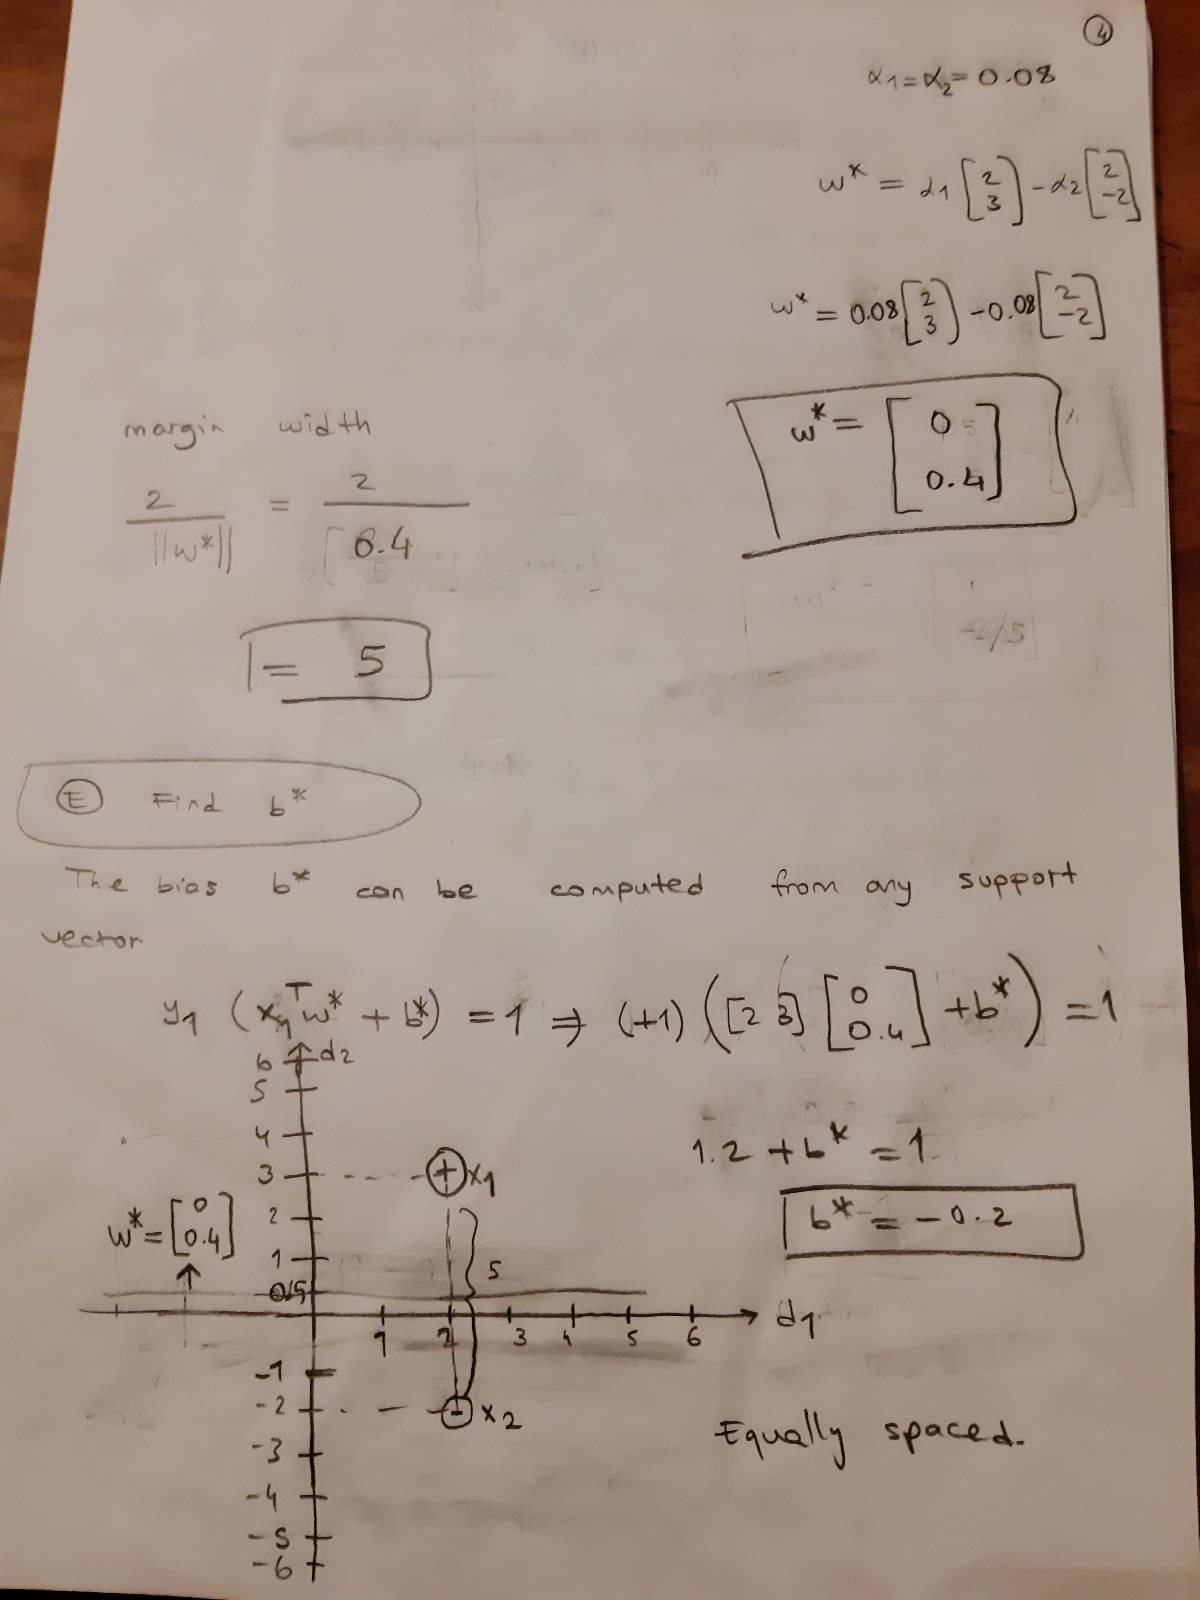 4
α1 = α2 = 0.08
w* = α1 [2 3] - α2 [2 -2]
w* = 0.08 [2 3] - 0.08 [2 -2]
w* = [0 0.4]
margin width
2 / ||w*|| = 2 / 0.4
= 5
-2/5
E Find b*
The bias b* can be computed from any support
vector
y1 (x1^T w* + b*) = 1 ⇒ (+1) ([2 3] [0 0.4] + b*) = 1
1.2 + b* = 1
b* = -0.2
d2
6
5
4
3
+ x1
w* = [0 0.4]
2
1
5
0.5
1 2 3 4 5 6 d1
-1
-2
- x2
-3
-4
-5
-6
Equally spaced.